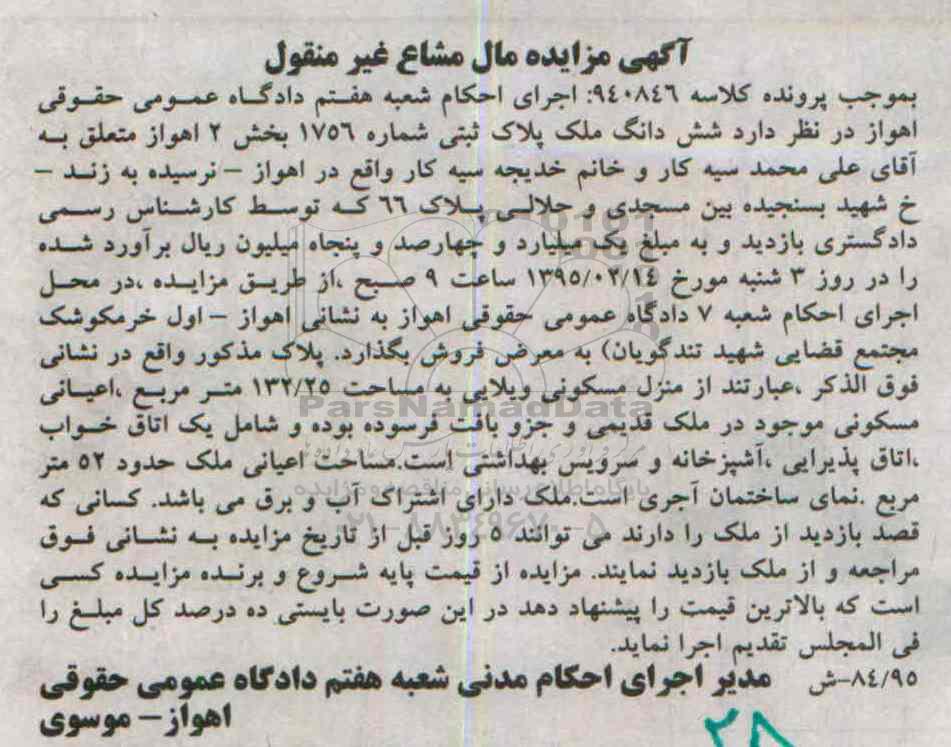 آگهی مزایده مال مشاع غیر منقول
بموجب پرونده کلاسه ۹٤۰۸٤٦: اجرای احکام شعبه هفتم دادگاه عمومی حقوقی
اهواز در نظر دارد شش دانگ ملک پلاک ثبتی شماره ۱۷۵٦ بخش ۲ اهواز متعلق به
آقای علی محمد سیه کار و خانم خدیجه سیه کار واقع در اهواز –نرسیده به زند –
خ شهید بسنجیده بین مسجدی و جلالی پلاک ٦٦ که توسط کارشناس رسمی
دادگستری بازدید و به مبلغ یک میلیارد و چهارصد و پنجاه میلیون ریال برآورد شده
را در روز ۳ شنبه مورخ ۱۳۹۵/۰۲/۱٤ ساعت ۹ صبح ،از طریق مزایده ،در محل
اجرای احکام شعبه ۷ دادگاه عمومی حقوقی اهواز به نشانی اهواز –اول خرمکوشک
مجتمع قضایی شهید تندگویان) به معرض فروش بگذارد. پلاک مذکور واقع در نشانی
فوق الذکر ،عبارتند از منزل مسکونی ویلایی به مساحت ۱۳۲/۲۵ متر مربع ،اعیانی
مسکونی موجود در ملک قدیمی و جزو بافت فرسوده بوده و شامل یک اتاق خواب
،اتاق پذیرایی ،آشپزخانه و سرویس بهداشتی است.مساحت اعیانی ملک حدود ۵۲ متر
مربع .نمای ساختمان آجری است.ملک دارای اشتراک آب و برق می باشد. کسانی که
قصد بازدید از ملک را دارند می توانند ۵ روز قبل از تاریخ مزایده به نشانی فوق
مراجعه و از ملک بازدید نمایند. مزایده از قیمت پایه شروع و برنده مزایده کسی
است که بالاترین قیمت را پیشنهاد دهد در این صورت بایستی ده درصد کل مبلغ را
فی المجلس تقدیم اجرا نماید.
۸٤/۹۵–ش مدیر اجرای احکام مدنی شعبه هفتم دادگاه عمومی حقوقی
اهواز– موسوی
۲۸
ParsNamadData
پایگاه اطلاع رسانی مناقصه و مزایده
۰۲۱-۸۸۳٤۹٦۷۰-۵